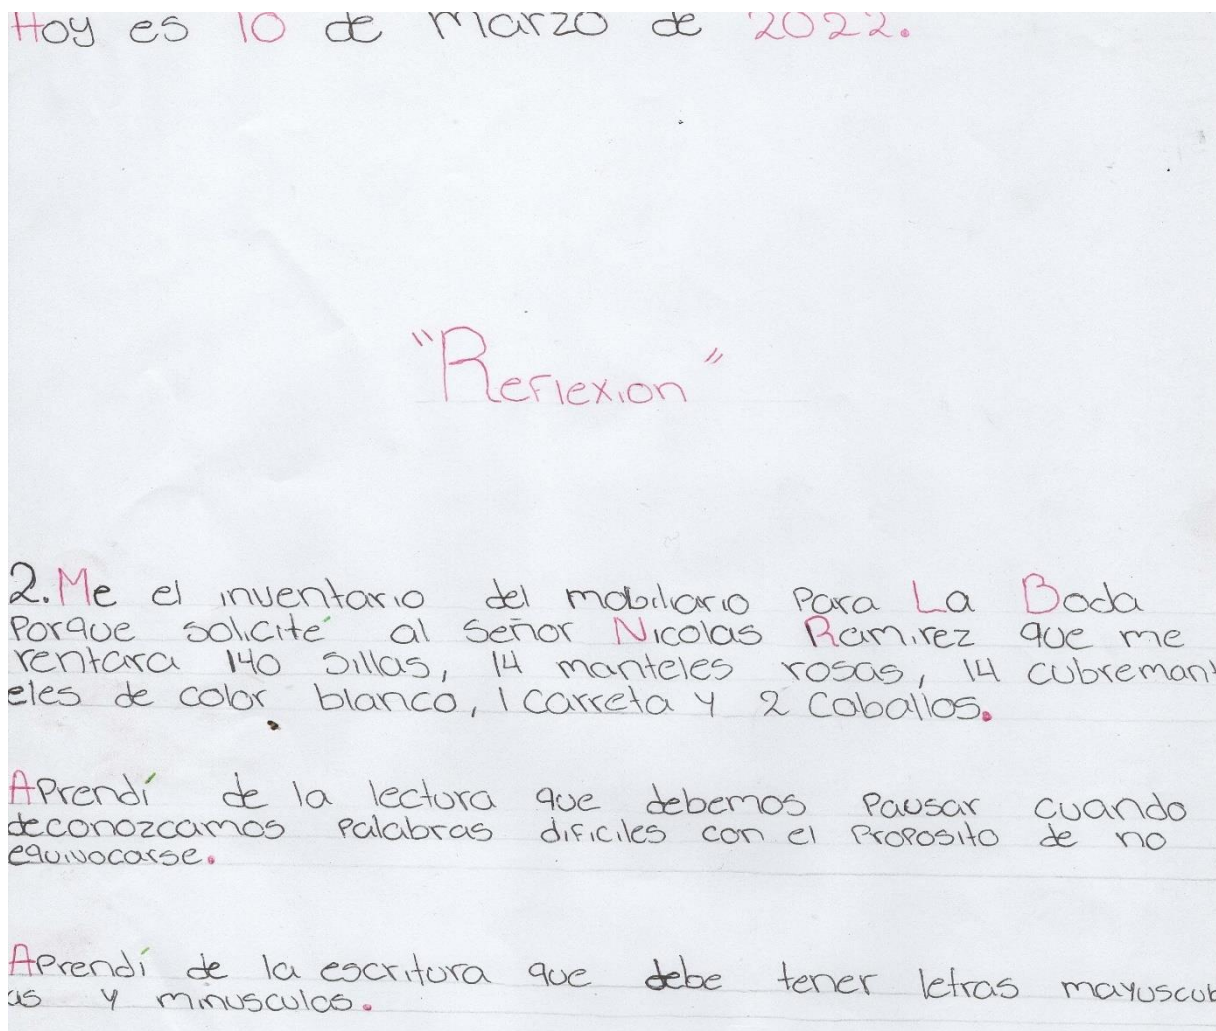 Hoy es 10 de Marzo de 2022.
"Reflexion"
2. Me el inventario del mobilario Para La Boda
Porque solicité al Señor Nicolas Ramirez que me
rentara 140 Sillas, 14 manteles rosas, 14 cubremant
eles de color blanco, 1 carreta y 2 Caballos.
APrendí de la lectura que debemos Pausar cuando
deconozcamos Palabras dificiles con el Proposito de no
equivocarse.
APrendí de la escritura que debe tener letras mayuscul
as y minusculas.